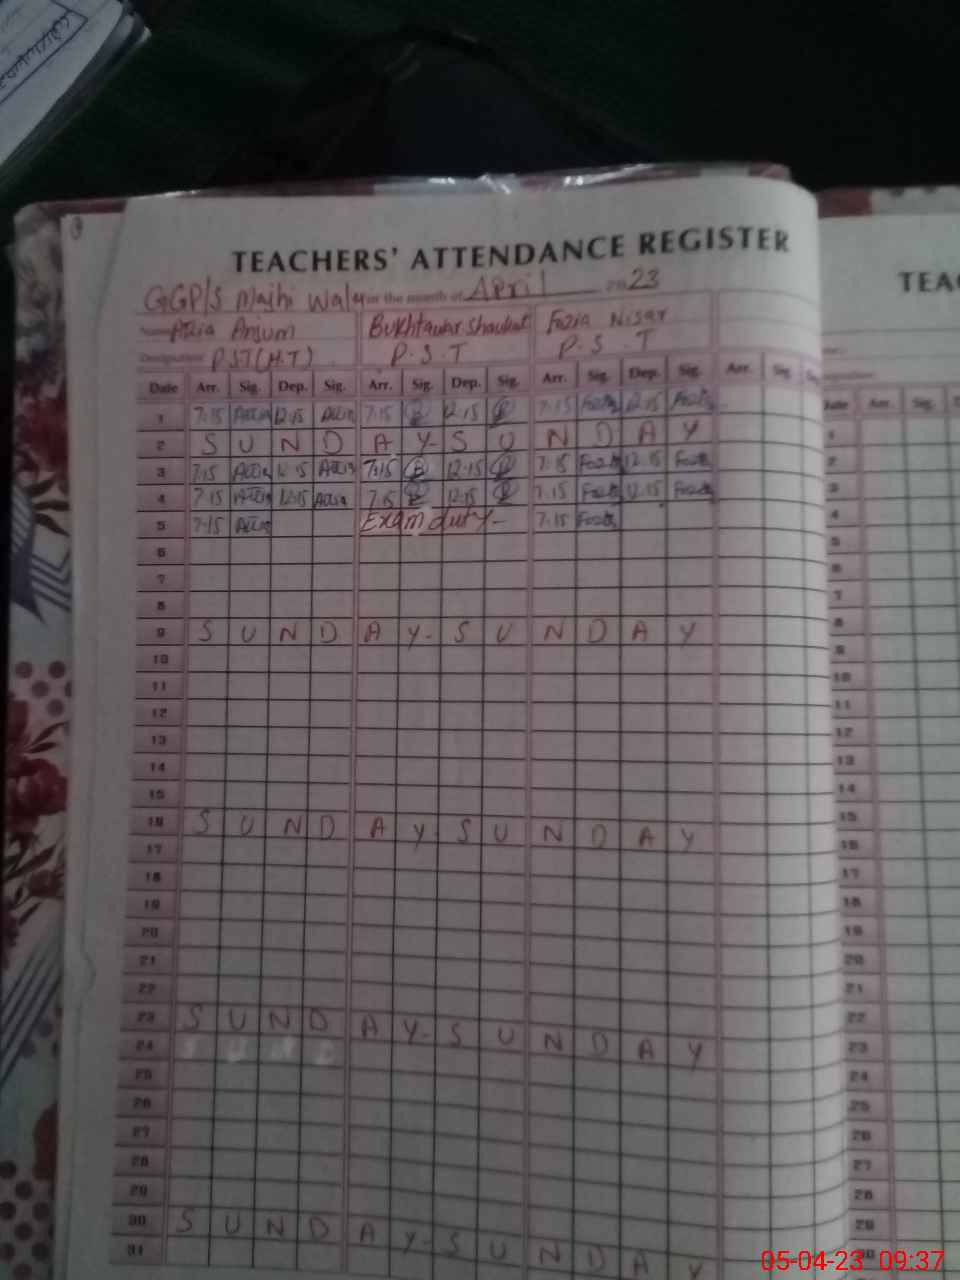 TEACHERS' ATTENDANCE REGISTER
GGP/S Majhi Waly in the month of April 2023
Name Azia Anjum Bukhtawar Shaukat Fozia Nisar
Designation P.S.T(H.T) P.S.T P.S.T
Date Arr. Sig. Dep. Sig. Arr. Sig. Dep. Sig. Arr. Sig. Dep. Sig. Arr. Sig.
1 7:15 12:15 7:15 12:15 7:15 12:15
2 S U N D A Y- S U N D A Y
3 7:15 12:15 7:15 12:15 7:15 12:15
4 7:15 12:15 7:15 12:15 7:15 12:15
5 7:15 Exam duty- 7:15
6
7
8
9 S U N D A Y- S U N D A Y
10
11
12
13
14
15
16 S U N D A Y- S U N D A Y
17
18
19
20
21
22
23 S U N D A Y- S U N D A Y
24
25
26
27
28
29
30 S U N D A Y- S U N D A Y
31
TEAC
Date Arr. Sig.
1
2
3
4
5
6
7
8
9
10
11
12
13
14
15
16
17
18
19
20
21
22
23
24
25
26
27
28
29
30
05-04-23 09:37